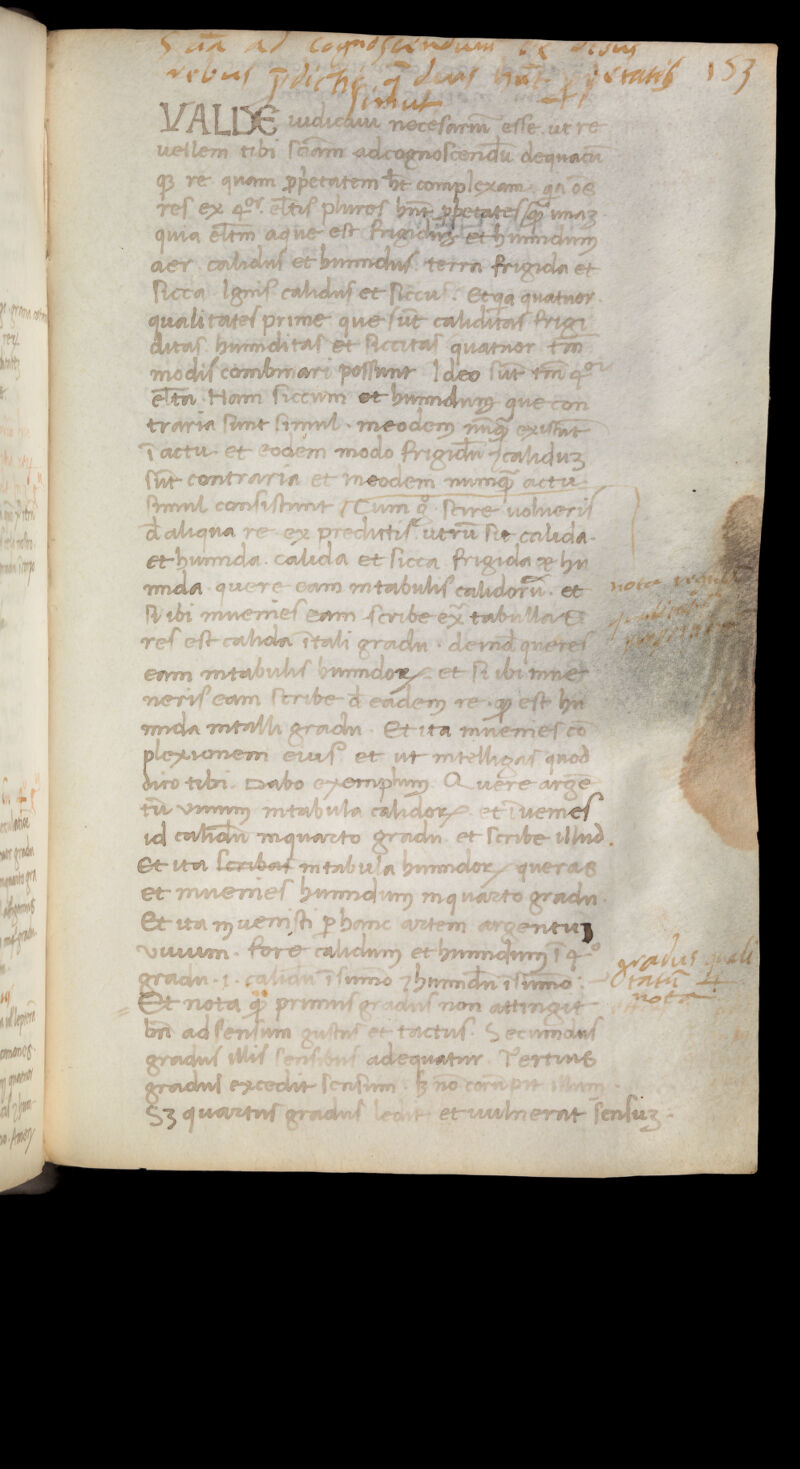 ad cognoscendum de
rebus p̄dictis q̄ duas hn̄t p̄petates 153
simul
VALDE iudicaui necesariū esse ut re
uellem tibi sciām adcognoscendū dequacū
qꝫ re quam ꝓp̄etatem hꝫ complexam. qa oēs
res ex 4or. eltīs plures hn̄t ꝓp̄etates quā unaꝫ
quia eltm̄ aque est frigidum et humidum
aer. calidus et humidus. terra frigida et
sicca. Ignis calidus et siccus. Etqa quatuor
qualitates prime que sūt caliditas frigi
ditas humiditas et siccitas quatuor tm̄
modis combinari possunt Ideo sūt tm̄ 4or
elt̄a. Nam siccum et humidum que con
traria sunt simul. ineodem nūq̄ existūt
ī actu. et eodem modo frigidū ⁊ calidum
sūt contraria et ineodem numq̄ actu
simul consistunt Cum gͦ. scire uolueris
d̄ aliqua re. ex predictis. utrū sit calida.
et humida. calida et sicca frigida et hu
mida. quere eam intabulis calidorū. et
si ibi inuenies eam scribe ex tabulla
res est calida ī tali gradu. deind queres
eam intabulis humidoꝝ. et si ibi inue
neris eam scribe d̄ eadem re. qꝫ est hu
mida intalli gradu. Et ita inuenies cō
plexionem eius. et ut intelligas quod
dico tibi. Dabo exemplum. Quere argē
tū uiuum intabula calidoꝝ et īuenies
id calidū inquarto gradu. et scribe illud.
Et ita scribas intabula humidoꝝ queras
et inuenies humidum inquarto gradu.
Et ita inuenisti ꝑ hanc artem argentuꝫ
uiuum. fore calidum et humidum ī 4o
gradu. i. calidū īsumo ⁊ humidū īsumo:
gradus quali
tatū
nota
Et nota qꝫ primus gradus non attingit
bn̄ ad sensum gustus et tactus. Secundus
gradus illis sensibus adequatur. Tertius
gradus excedit sensum. sꝫ nō corūpit illum.
Sꝫ quartus gradus ledit et uulnerat sensuꝫ.
nota